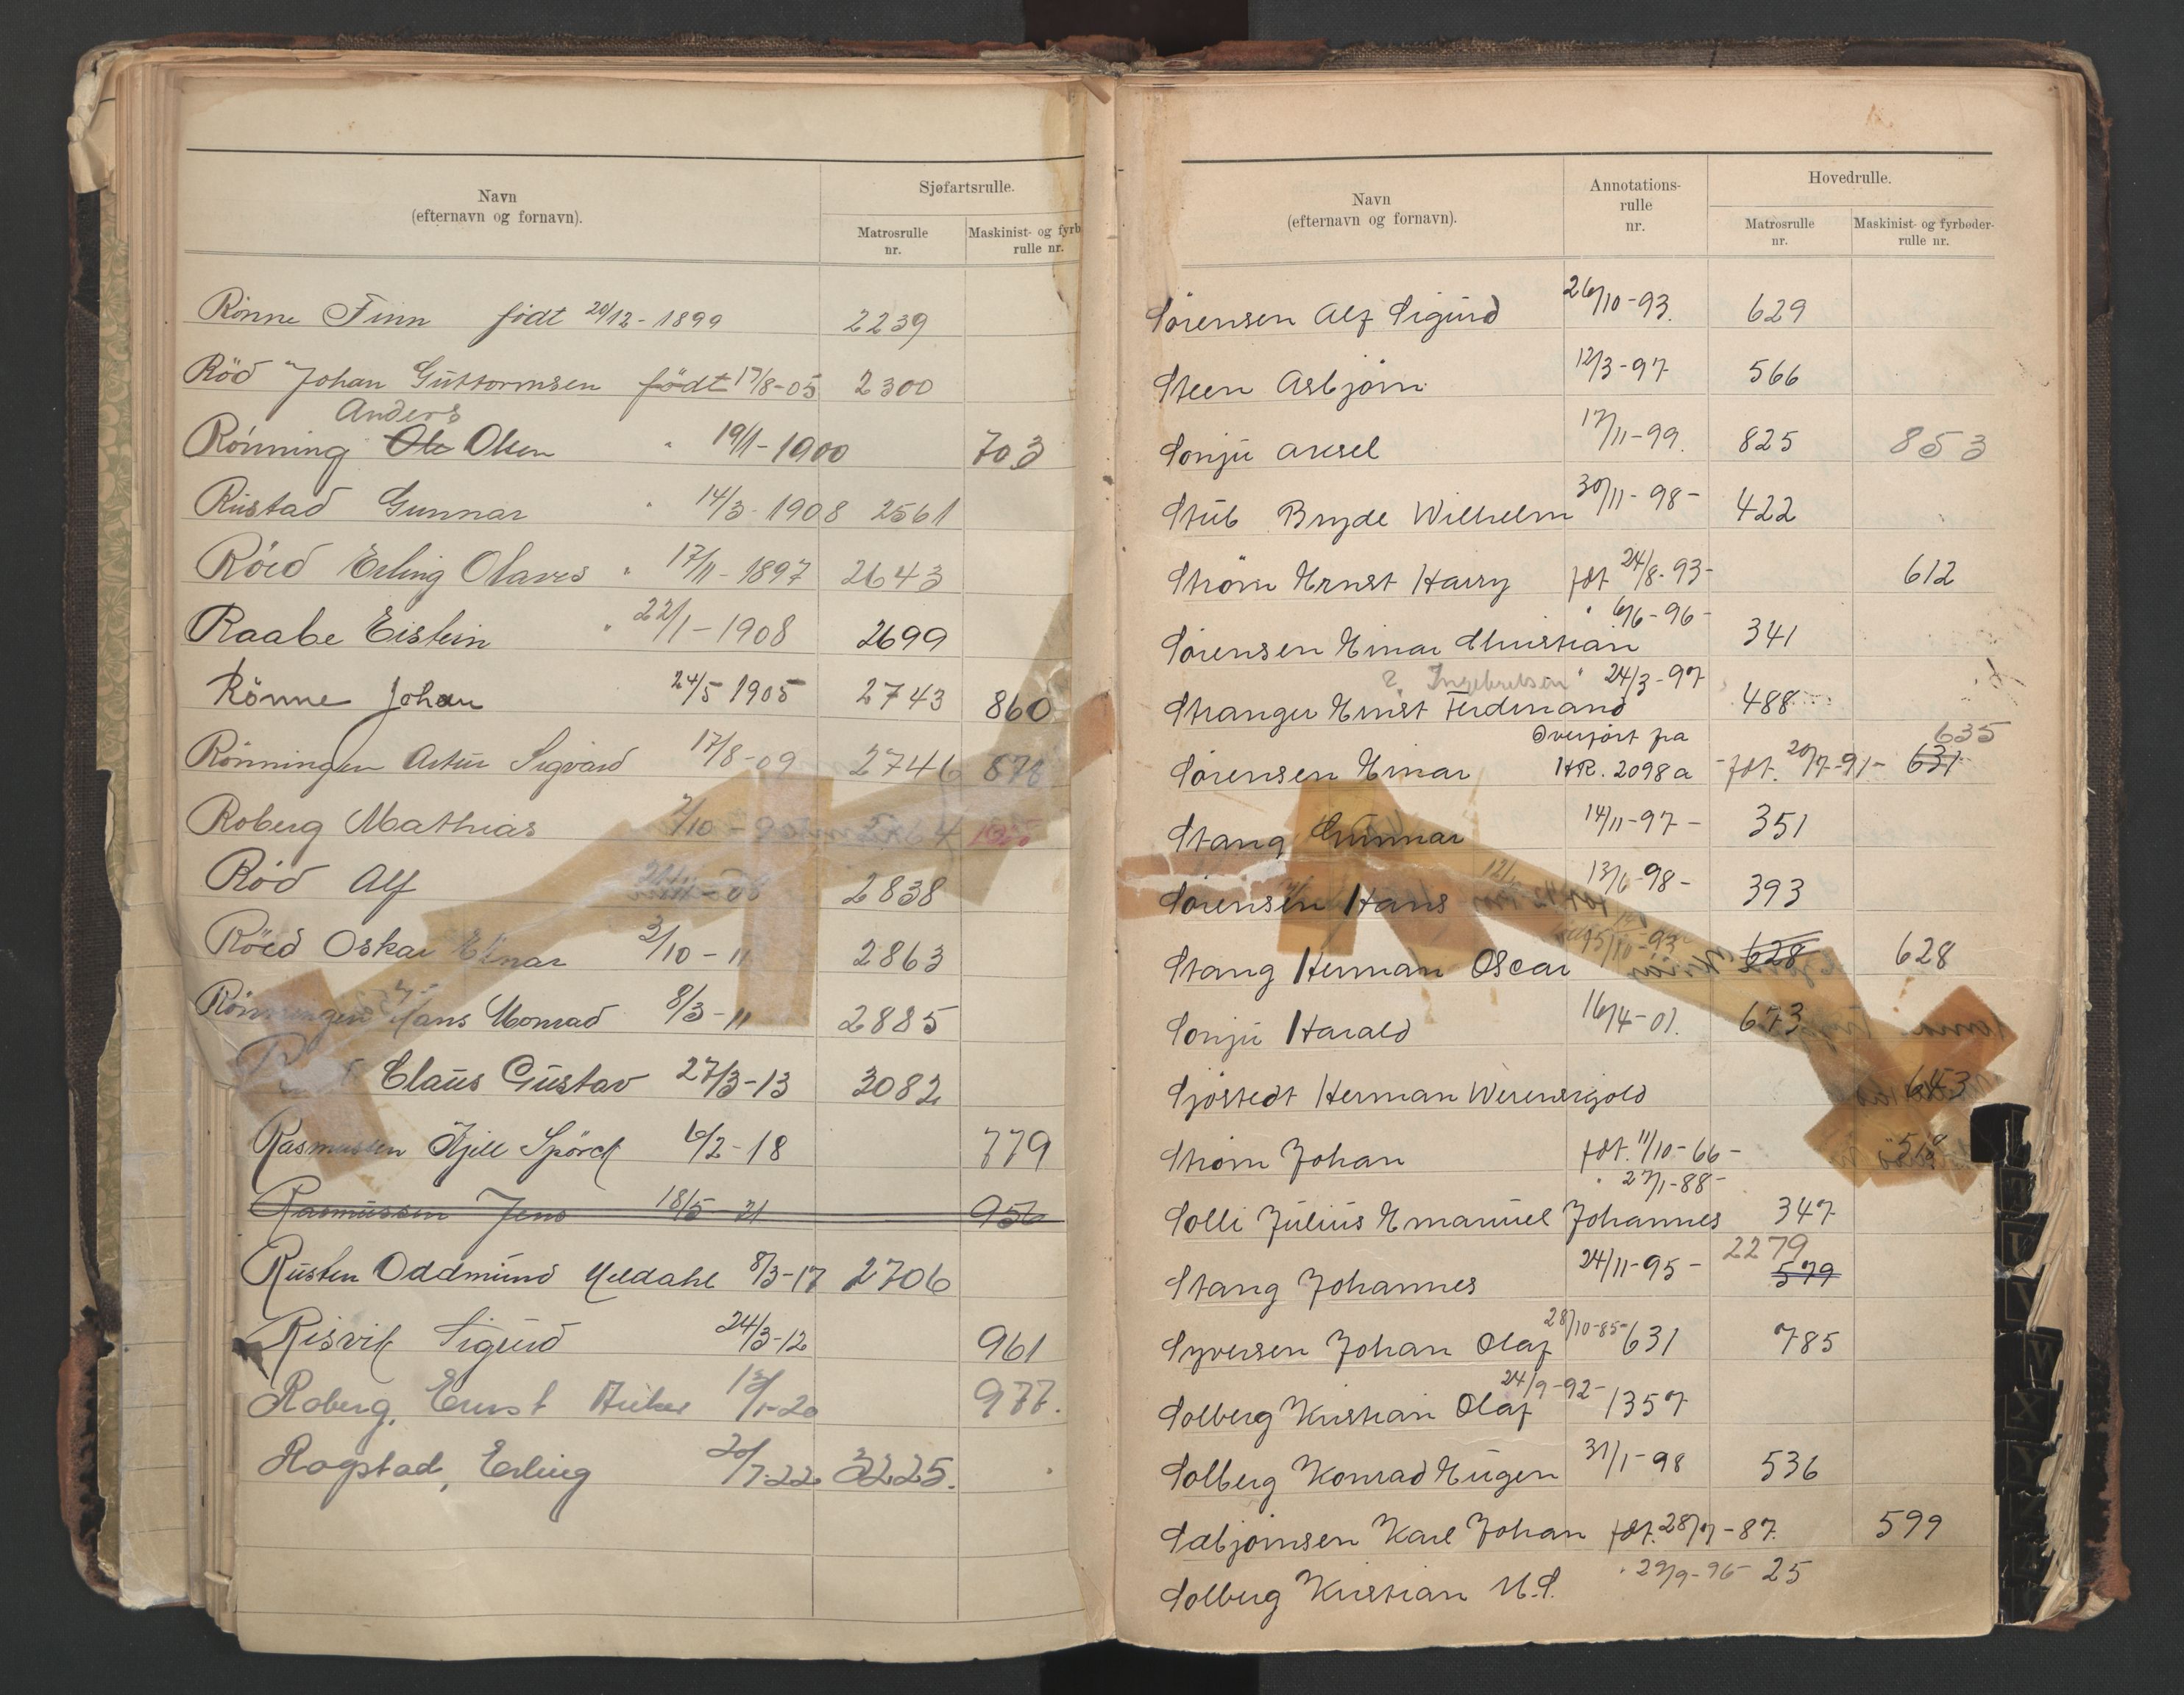 Navn
(efternavn og fornavn).
Sjøfartsrulle.
Matrosrulle
nr.
Maskinist- og fyrb
rulle nr.
Rönne Finn födt 20/12-1899 2239
Röd Johan Guttormsen födt 17/8-05 2300
Anders
Rönning Ole Olsen " 19/1-1900 703
Rustad Gunnar " 14/3-1908 2561
Röed Erling Olaves " 17/11-1897 2643
Raabe Eistein " 22/1-1908 2699
Rönne Johan 24/5 1905 2743 860
Rönningen Artur Sigvard 17/8-09 2746 878
Roberg Mathias 7/10-
Röd Alf 2838
Röed Oskar Einar 3/10-11 2863
Rönningen Hans Monrad 8/3-11 2885
Claus Gustav 27/3-13 3082
Rasmussen Kjell Spörck 6/2-18 779
Rasmussen Jens 18/5-21 956
Rusten Oddmund Meldahl 8/3-17 2706
Risvik Sigurd 24/3-12 961
Roberg, Ernst 13/1-20 977.
Rogstad, Erling 20/7-22 3225.
Navn
(efternavn og fornavn).
Annotations-
rulle
nr.
Hovedrulle.
Matrosrulle
nr.
Maskinist- og fyrbøder-
rulle nr.
Sörensen Alf Sigurd 26/10-93. 629
Steen Asbjörn 12/3-97 566
Sonju Aksel 17/11-99. 825 853
Stub Bryde Wilhelm 30/11-98- 422
Ström Ernst Harry fdt 24/8-93- 612
Sörensen Einar Christian " 6/6-96- 341
? Ingebretsen " 24/3-97
Stranger Ernst Ferdinand 488
Overfört fra 635
Sörensen Einar HR. 2098a - fdt. 20/7-91- 631
Stang Gunnar 14/11-97- 351
Sörensen Hans 13/6-98- 393
Stang Herman Oscar 15/10-93 628 628
Sonju Harald 16/4-01. 673
Sjöstedt Herman Werenskjold 643
Ström Johan fdt. 11/10-66- 519
" 27/1-88-
Solli Julius Emanuel Johannes 347
2279
Stang Johannes 24/11-95- 579
Syversen Johan Olaf 28/10-85- 631 785
Solberg Kristian Olaf 24/9-92- 1357
Solberg Konrad Eugen 31/1-98 536
Sæbjörnsen Karl Johan fdt. 28/7-87. 599
Solberg Kristian M.S. " 29/9-96- 25